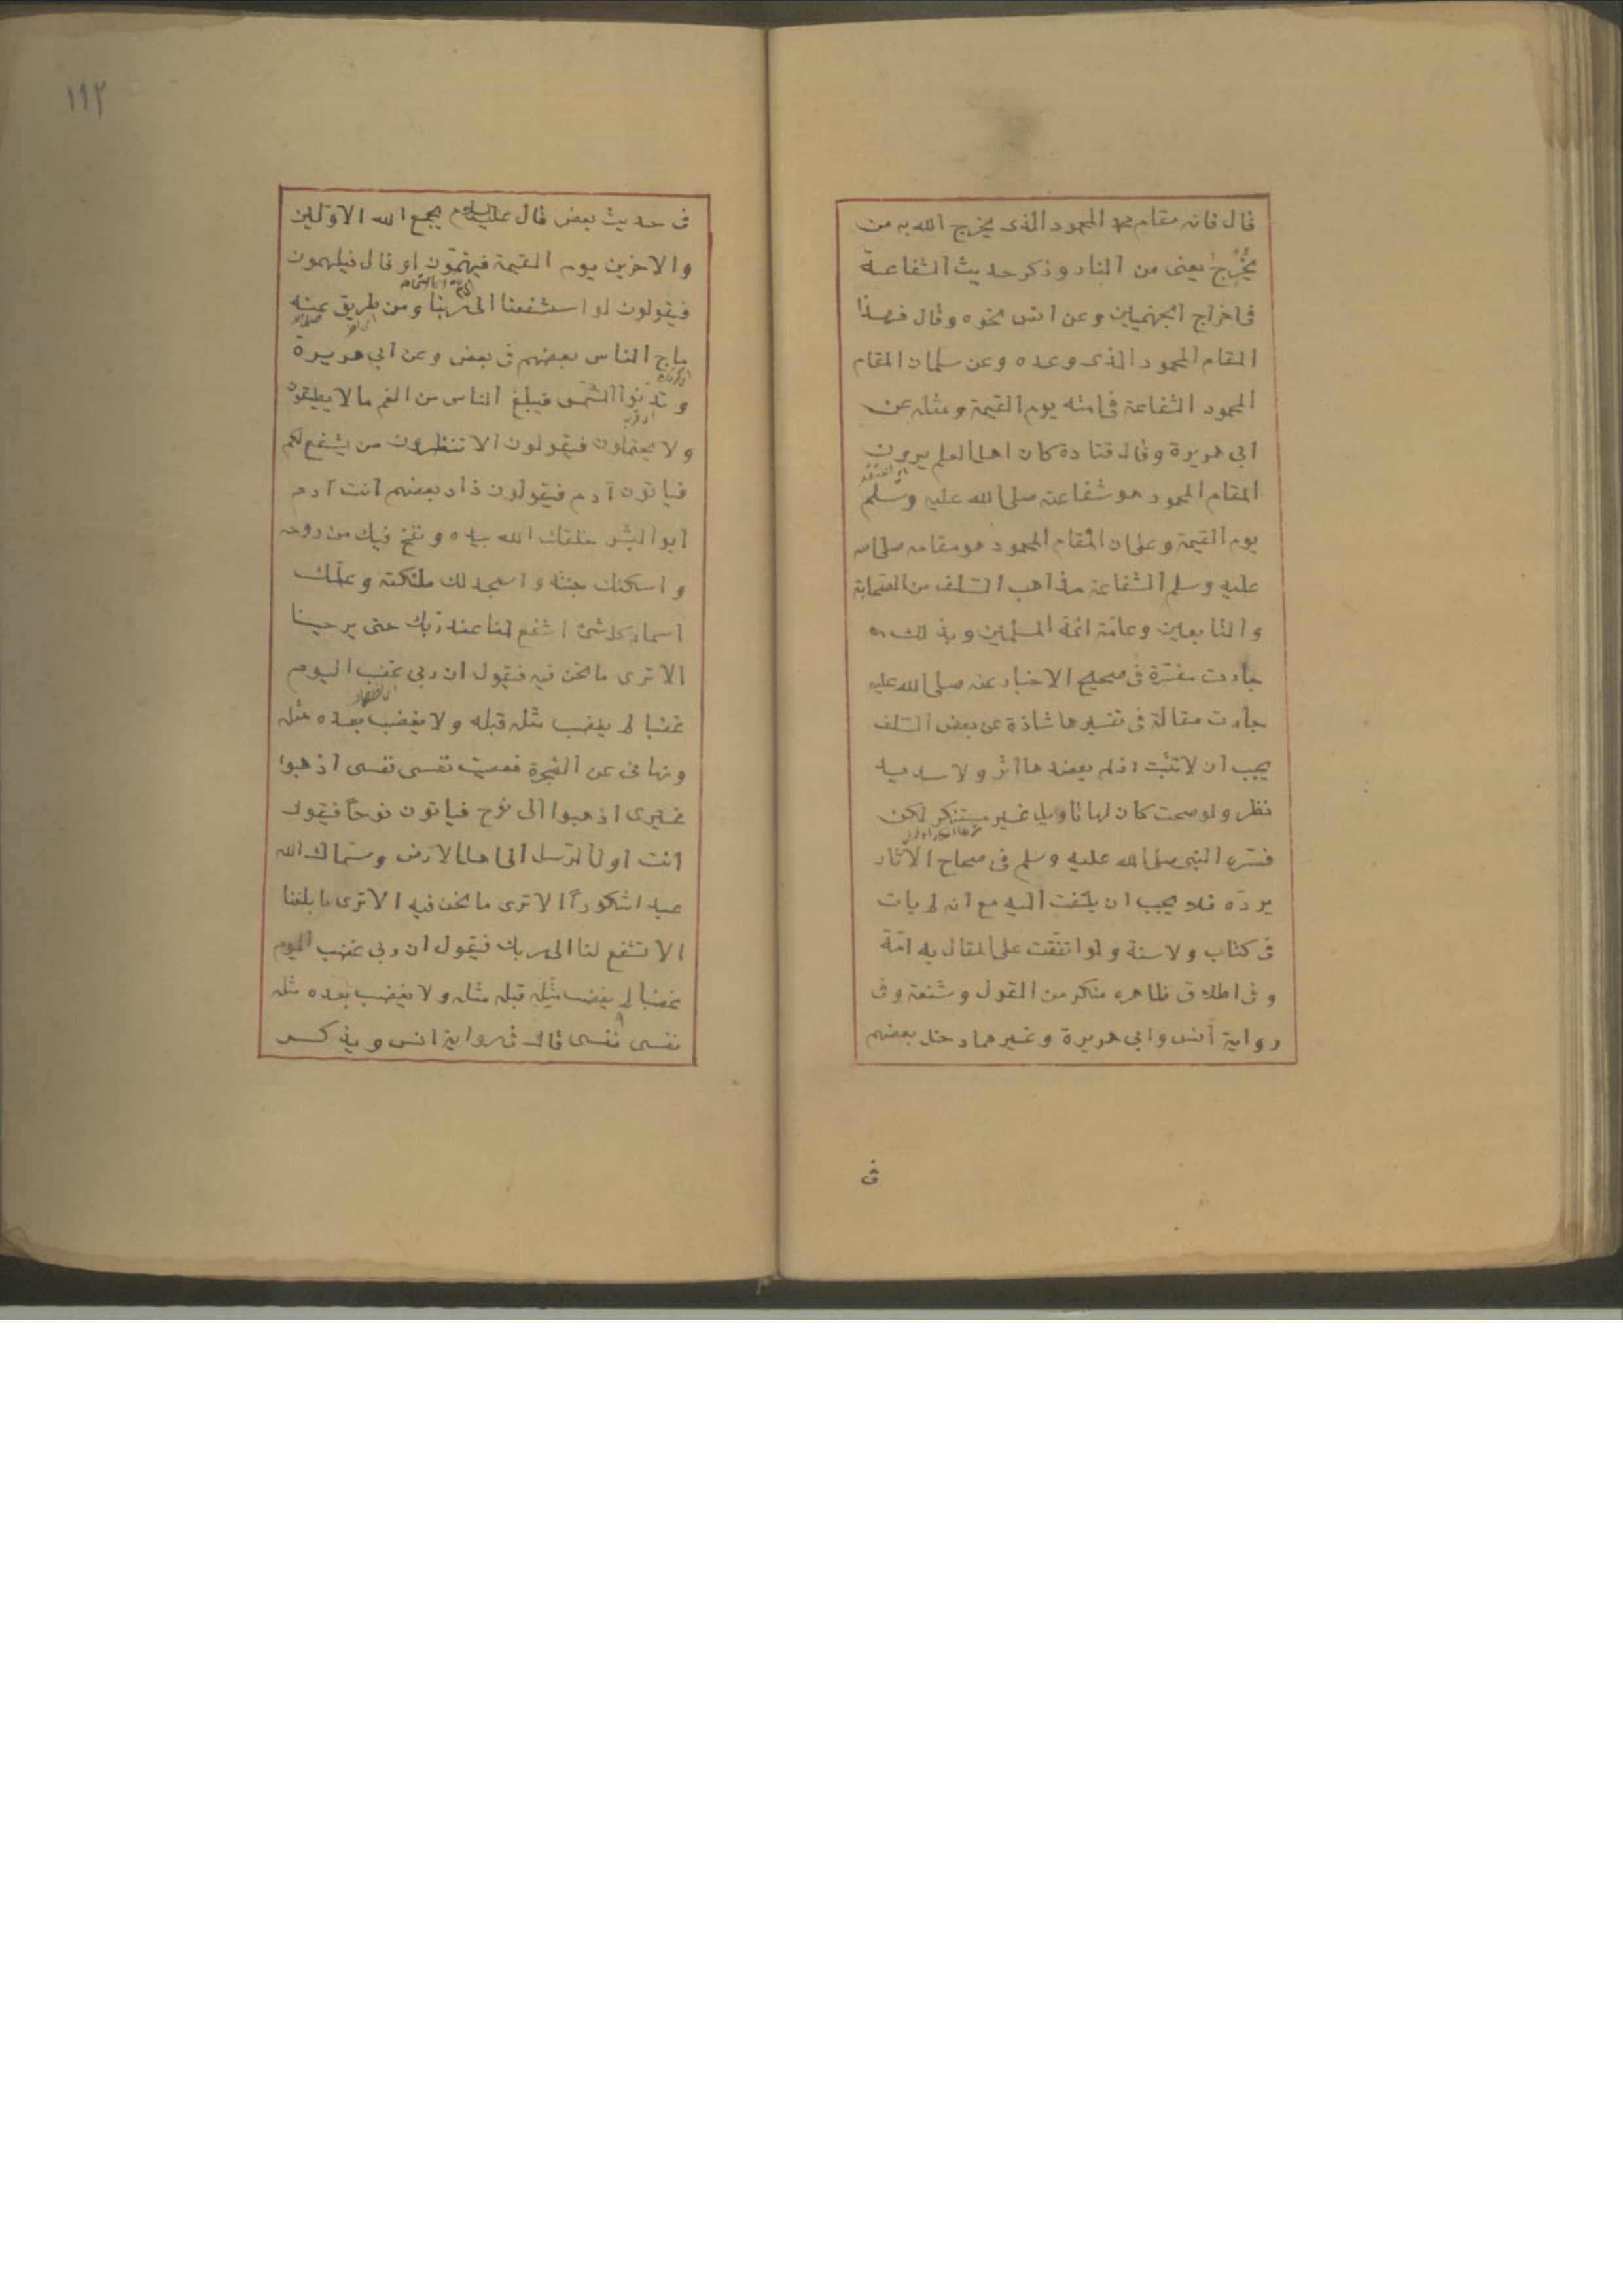 قال فانه مقام محمد المحمود الذى يخرج الله به من
يخرج يعنى من النار وذكر حديث الشفاعة
فى اخراج الجهنميين وعن انس نحوه وقال فهذا
المقام المحمود الذى وعده وعن سلمان المقام
المحمود الشفاعة فى امته يوم القيمة ومثله عن
ابى هريرة وقال قتادة كان اهل العلم يرون
المقام المحمود هو شفاعته صلى الله عليه وسلم
يوم القيمة وعلى ان المقام المحمود هو مقامه صلى الله
عليه وسلم الشفاعة مذاهب السلف من الصحابة
والتابعين وعامّة ائمة المسلمين وبذلك
جاءت مفسّرة فى صحيح الاخبار عنه صلى الله عليه
جاءت مقالة فى تفسيرها شاذة عن بعض السلف
يجب ان لا تثبت اذ لم يعضدها اثر ولا سديد
نظر ولو صحت كان لها تاويل غير مستنكر لكن
فسّره النبى صلى الله عليه وسلم فى صحاح الآثار
يردّه فلا يجب ان يلتفت اليه مع انه لم يات
فى كتاب ولا سنة ولو اتفقت على المقال به امّة
وفى اطلاق ظاهره منكر من القول وشنعة وفى
رواية انس وابى هريرة وغيرهما دخل بعضهم
فى
١١٢
فى حديث بعض قال عليه السلام يجمع الله الاوّلين
والاخرين يوم القيمة فيهتمّون او قال فيلهمون
فيقولون لو استشفعنا الى ربنا ومن طريق عنه
ماج الناس بعضهم فى بعض وعن ابى هريرة
وتدنوا الشمس فيبلغ الناس من الغم ما لا يطيقون
ولا يحتملون فيقولون الا تنظرون من يشفع لكم
فياتون آدم فيقولون زاد بعضهم انت آدم
ابو البشر خلقك الله بيده ونفخ فيك من روحه
واسكنك جنته واسجد لك ملئكته وعلّمك
اسماء كل شئ اشفع لنا عند ربك حتى يرحينا
الا ترى ما نحن فيه فيقول ان ربى غضب اليوم
غضبا لم يغضب مثله قبله ولا يغضب بعده مثله
ونهانى عن الشجرة فعصيت نفسى نفسى اذهبوا
غيرى اذهبوا الى نوح فياتون نوحًا فيقول
انت اول الرسل الى اهل الارض وسمّاك الله
عبدا شكورًا الا ترى ما نحن فيه الا ترى ما بلغنا
الا تشفع لنا الى ربك فيقول ان ربى غضب اليوم
غضبا لم يغضب مثله قبله مثله ولا يغضب بعده مثله
نفسى نفسى قال فى رواية انس ويذكر